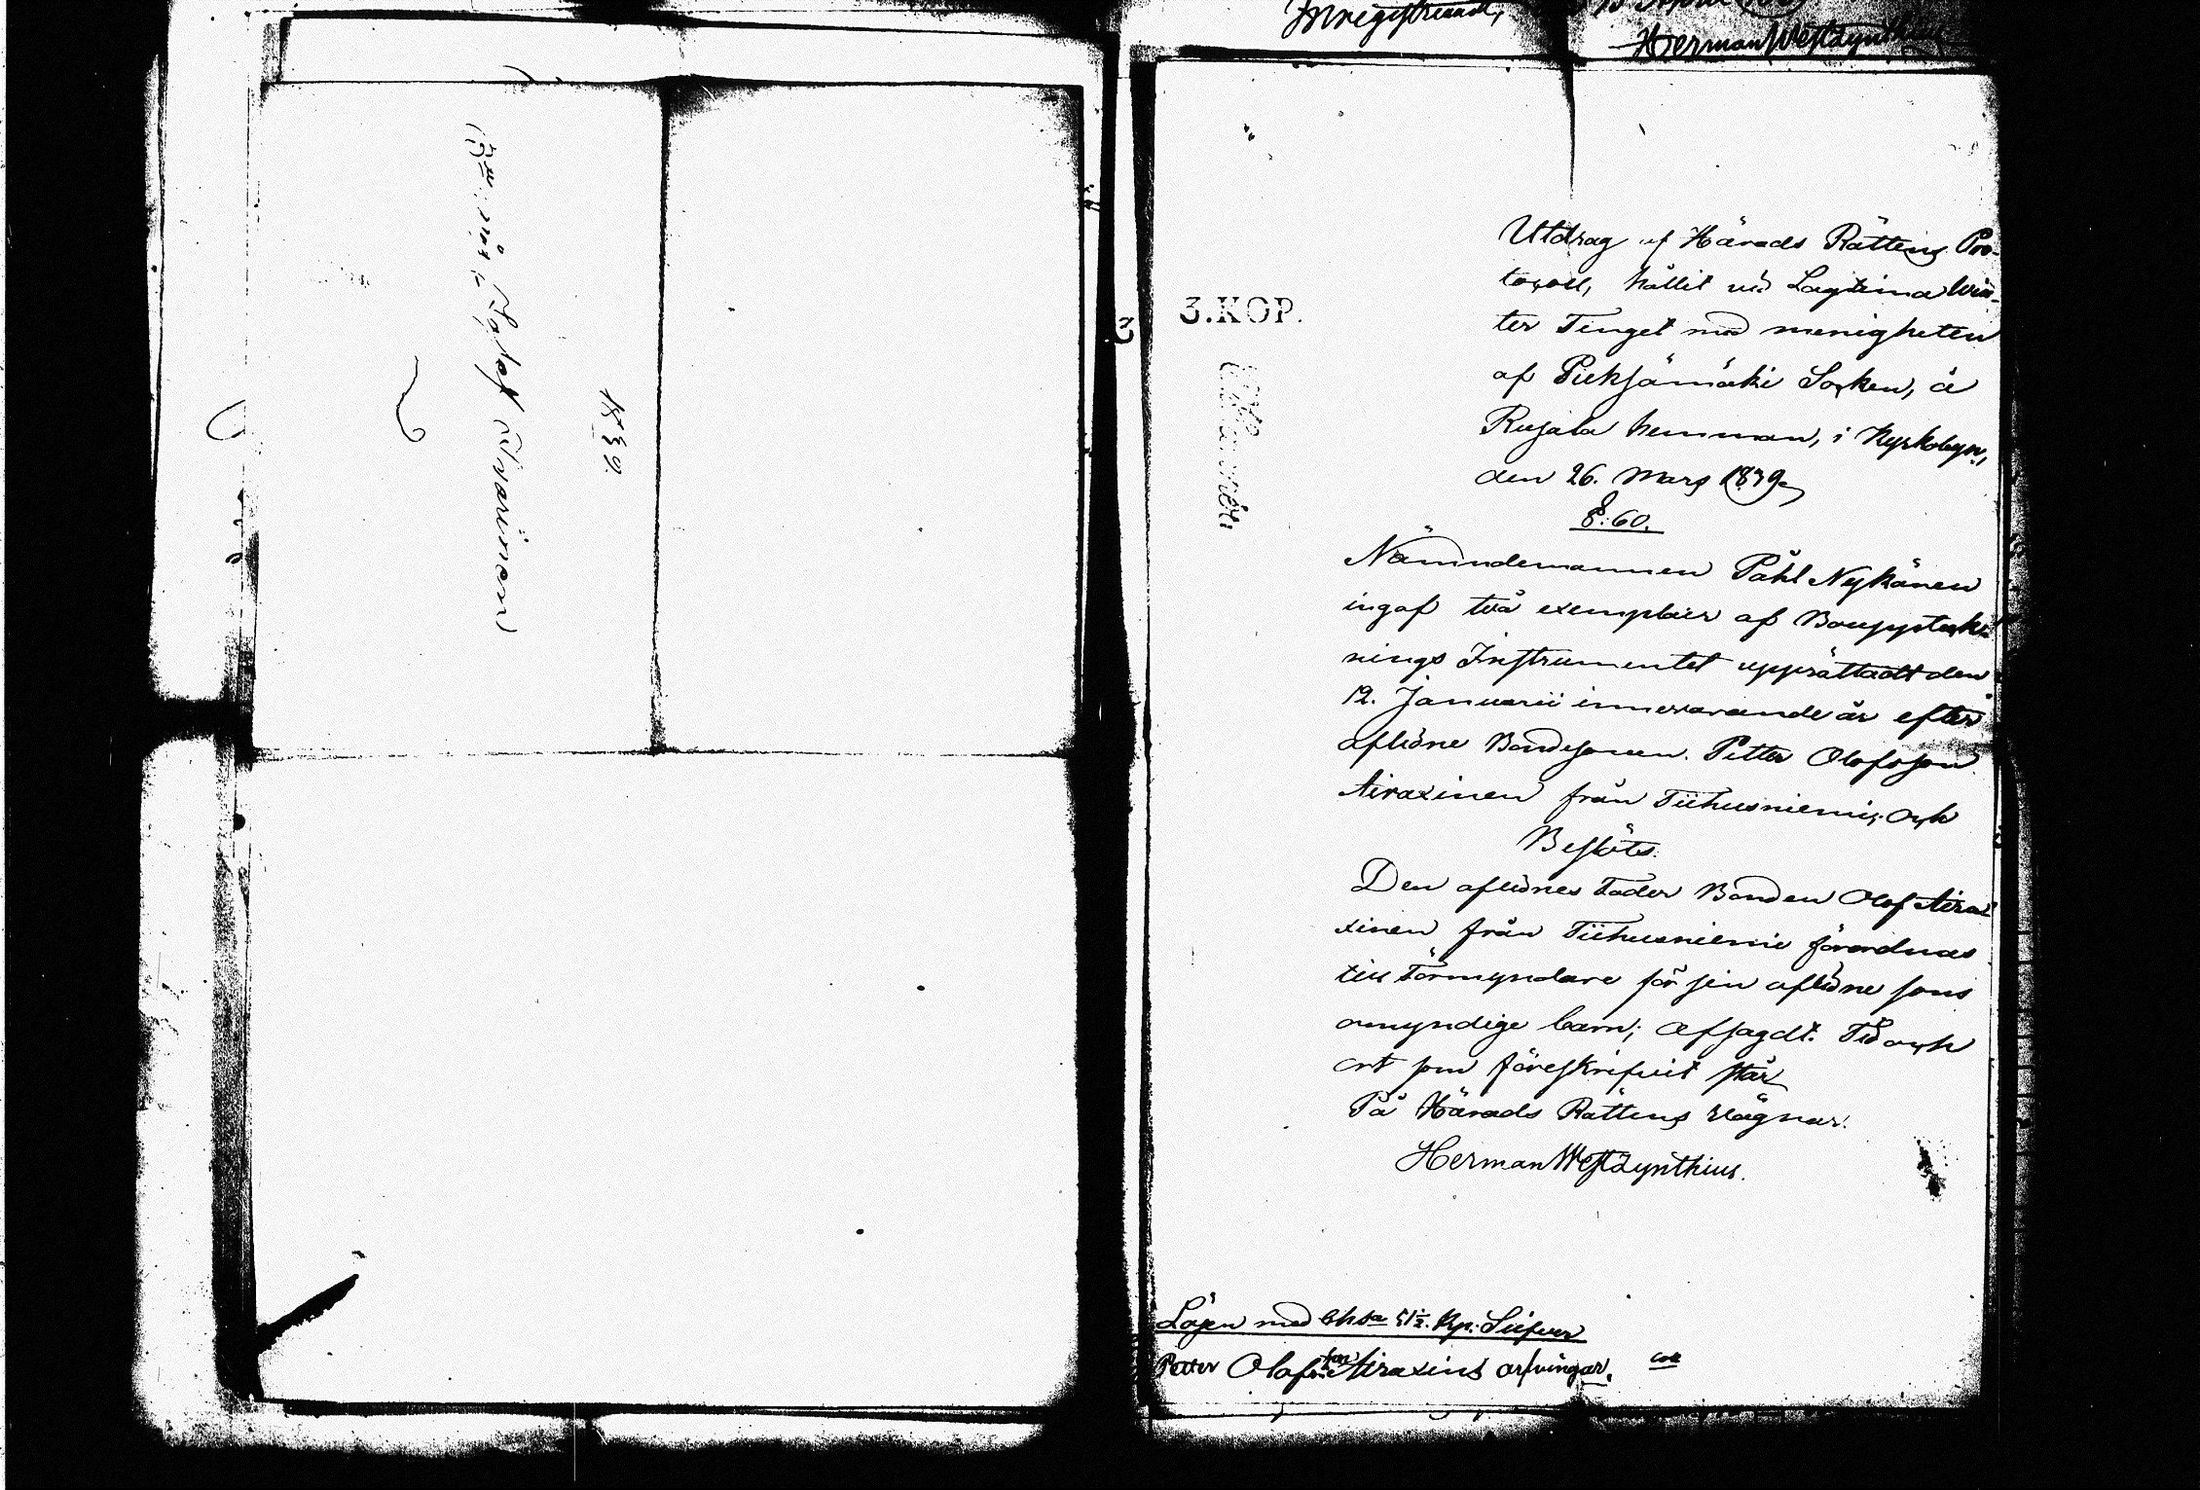 Olof Airaxinen
1839.
Inregistreradt,
Herman Westzynthius
3.KOP.
3
Utdrag af Härads Rättens Pro-
tocoll, hållit vid Lagtima Win-
ter Tinget med menigheten
af Pieksämäki Socken, å
Rujala hemman, i Kyrkobyn,
den 26. Mars 1839.
§: 60.
Nämndemannen Påhl Nykänen
ingaf två exemplair af Boupptek-
nings Instrumentet upprättadt den
12. Januarii innevarande år efter
aflidne Bondesonen Petter Olofsson
Airaxinen från Tiihusniemi; och
Beslöts:
Den aflidnes Fader Bonden Olof Airax
xinen från Tiihusniemi förordnas
till Förmyndare för sin aflidne sons
omyndige barn; afsagdt. Tid och
ort som föreskrifvit står
På Härads Rättens vägnar:
Herman Westzynthius.
Lösen med 51½. Kop: Silfver
Petter Olofsson Airaxins arfvingar.